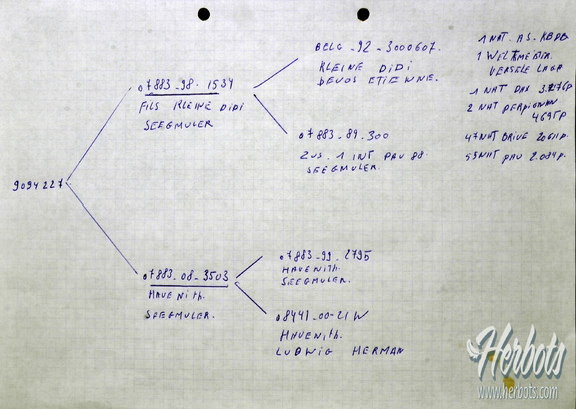 9094227
07883-98-1534
FILS KLEINE DIDI
SEEGMULER
BELG-92-3000607.
KLEINE DIDI
DEVOS ETIENNE.
07883-89-300
ZUS. 1 INT PAU 88.
SEEGMULER.
1 NAT. AS. KBDB
1
VERSELE LAGA
1 NAT PAU
2 NAT PERPIGNAN
NAT BRIVE
NAT PAU
07883-08-3503
HAVENITH.
SEEGMULER.
07883-99-2795
HAVENITH.
SEEGMULER.
08441-00-21W
HAVENITH.
LUDWIG HERMAN
Herbots
www.herbots.com